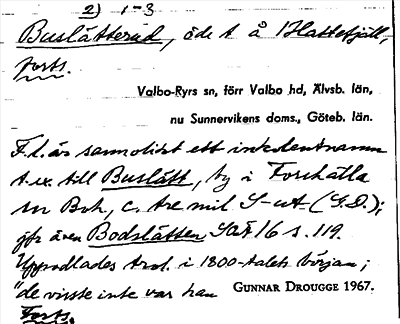 2) 1-3
Buslätterud, öde t. å Hattefjäll,
forts.
Valbo-Ryrs sn, förr Valbo hd, Älvsb. län,
nu Sunnervikens doms., Göteb. län.
F.l. är sannolikt ett inkolentnamn
t.ex. till Buslätt, by i Forshälla
sn Boh., c. tre mil S-ut (G.D.);
jfr även Bodslätten SOÄ 16 s. 119.
Uppodlades trol. i 1800-talets början;
"de visste inte var han
GUNNAR DROUGGE 1967.
Forts.